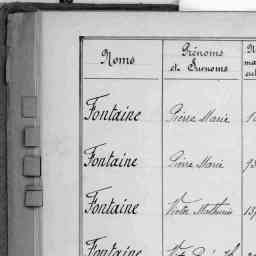 Noms
Prénoms
et Surnoms
Fontaine
Pierre Marie
Fontaine
Pierre Marie
Fontaine
Victor Mathurin
Fontaine